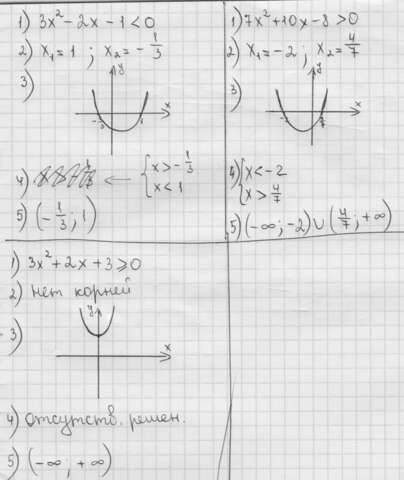 1) 3x² - 2x - 1 < 0
2) x₁ = 1 ; x₂ = - 1/3
3)
y
x
- 1/3
1
4)
← { x > - 1/3
x < 1
5) (- 1/3 ; 1)
1) 7x² + 10x - 8 > 0
2) x₁ = -2 ; x₂ = 4/7
3)
y
x
-2
4/7
4) { x < -2
x > 4/7
5) (-∞ ; -2) ∪ (4/7 ; +∞)
1) 3x² + 2x + 3 ⩾ 0
2) нет корней
3)
y
x
4) Отсутств. решен.
5) (-∞ ; +∞)